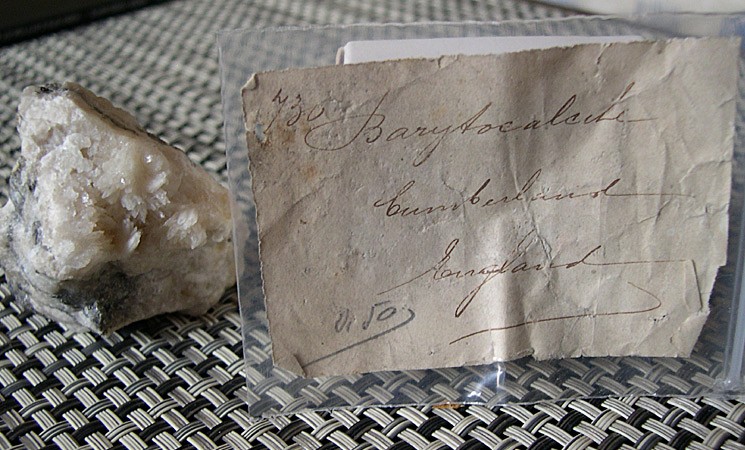 730 Barytocalcite
Cumberland
England